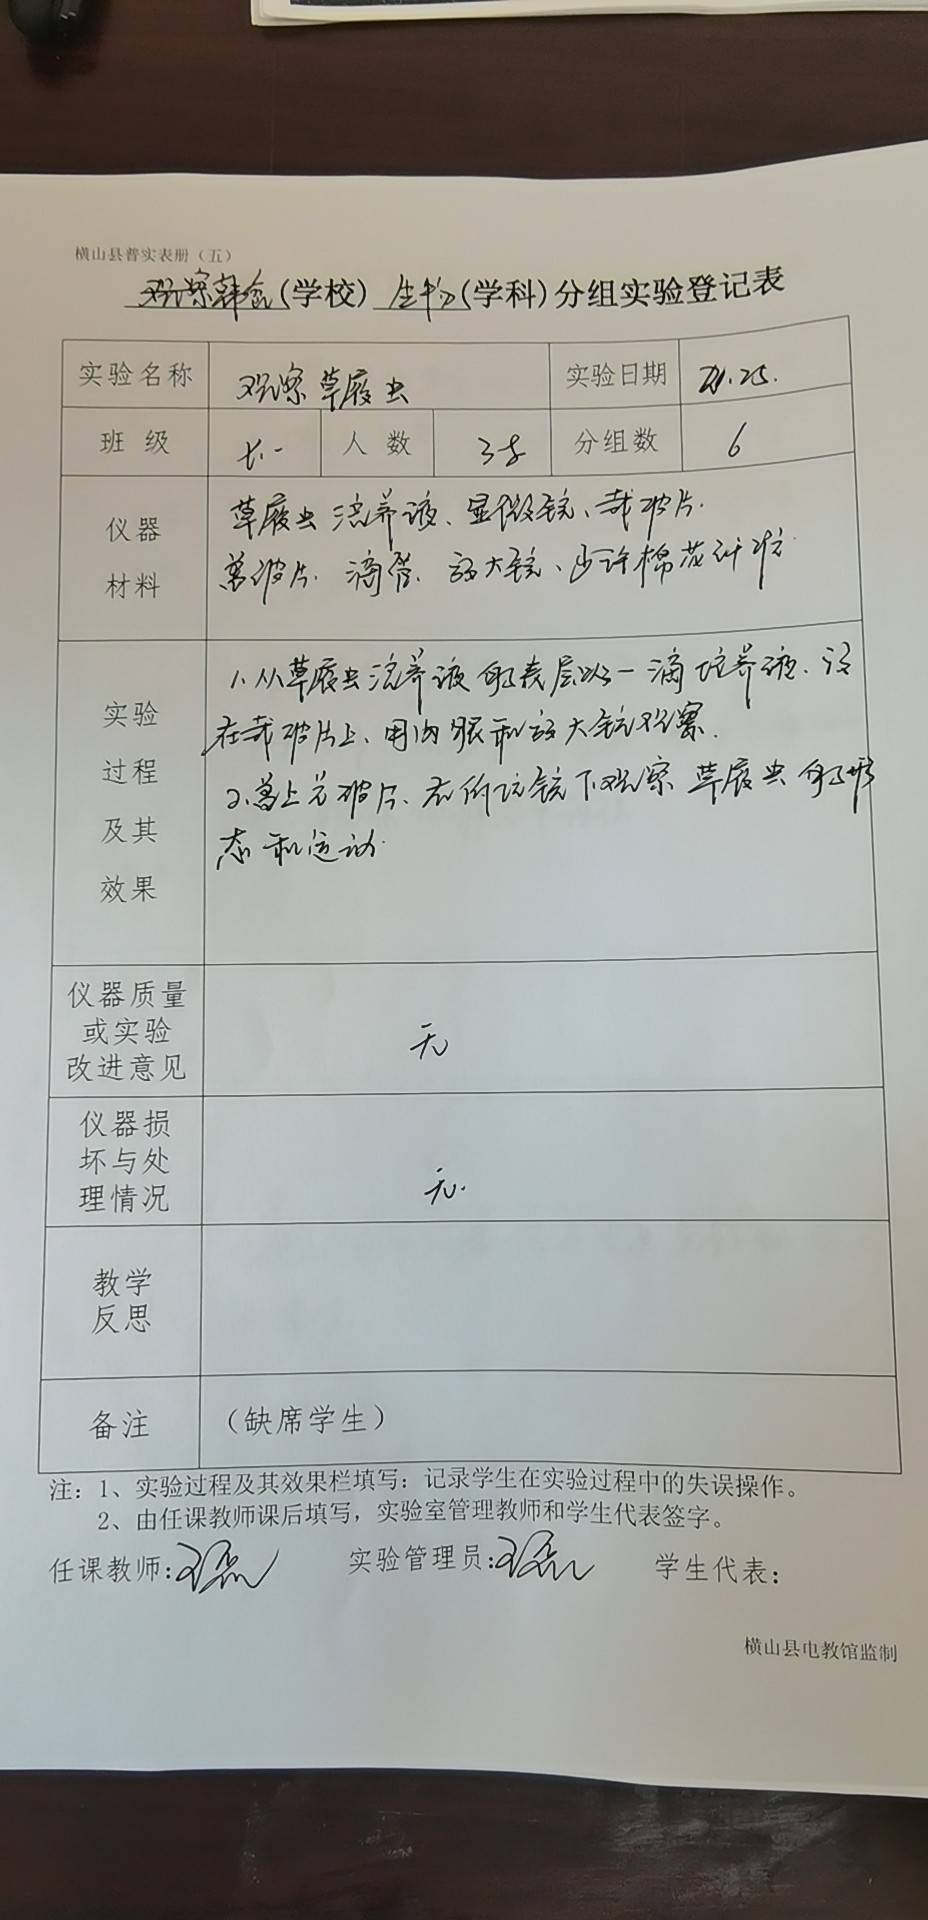 横山县普实表册（五）
(学校) 生物(学科)分组实验登记表
实验名称 观察草履虫 实验日期 21.25.
班 级 七.一 人 数 38 分组数 6
仪器
材料
草履虫培养液、显微镜、载玻片.
盖玻片. 滴管. 放大镜、少许棉花纤维
实验
过程
及其
效果
1.从草履虫培养液的表层吸一滴培养液.放
在载玻片上、用肉眼和放大镜观察.
2.盖上盖玻片、在低倍镜下观察草履虫的形
态和运动.
仪器质量
或实验
改进意见
无
仪器损
坏与处
理情况
无.
教学
反思
备注 （缺席学生）
注：1、实验过程及其效果栏填写：记录学生在实验过程中的失误操作。
2、由任课教师课后填写，实验室管理教师和学生代表签字。
任课教师: 实验管理员: 学生代表：
横山县电教馆监制